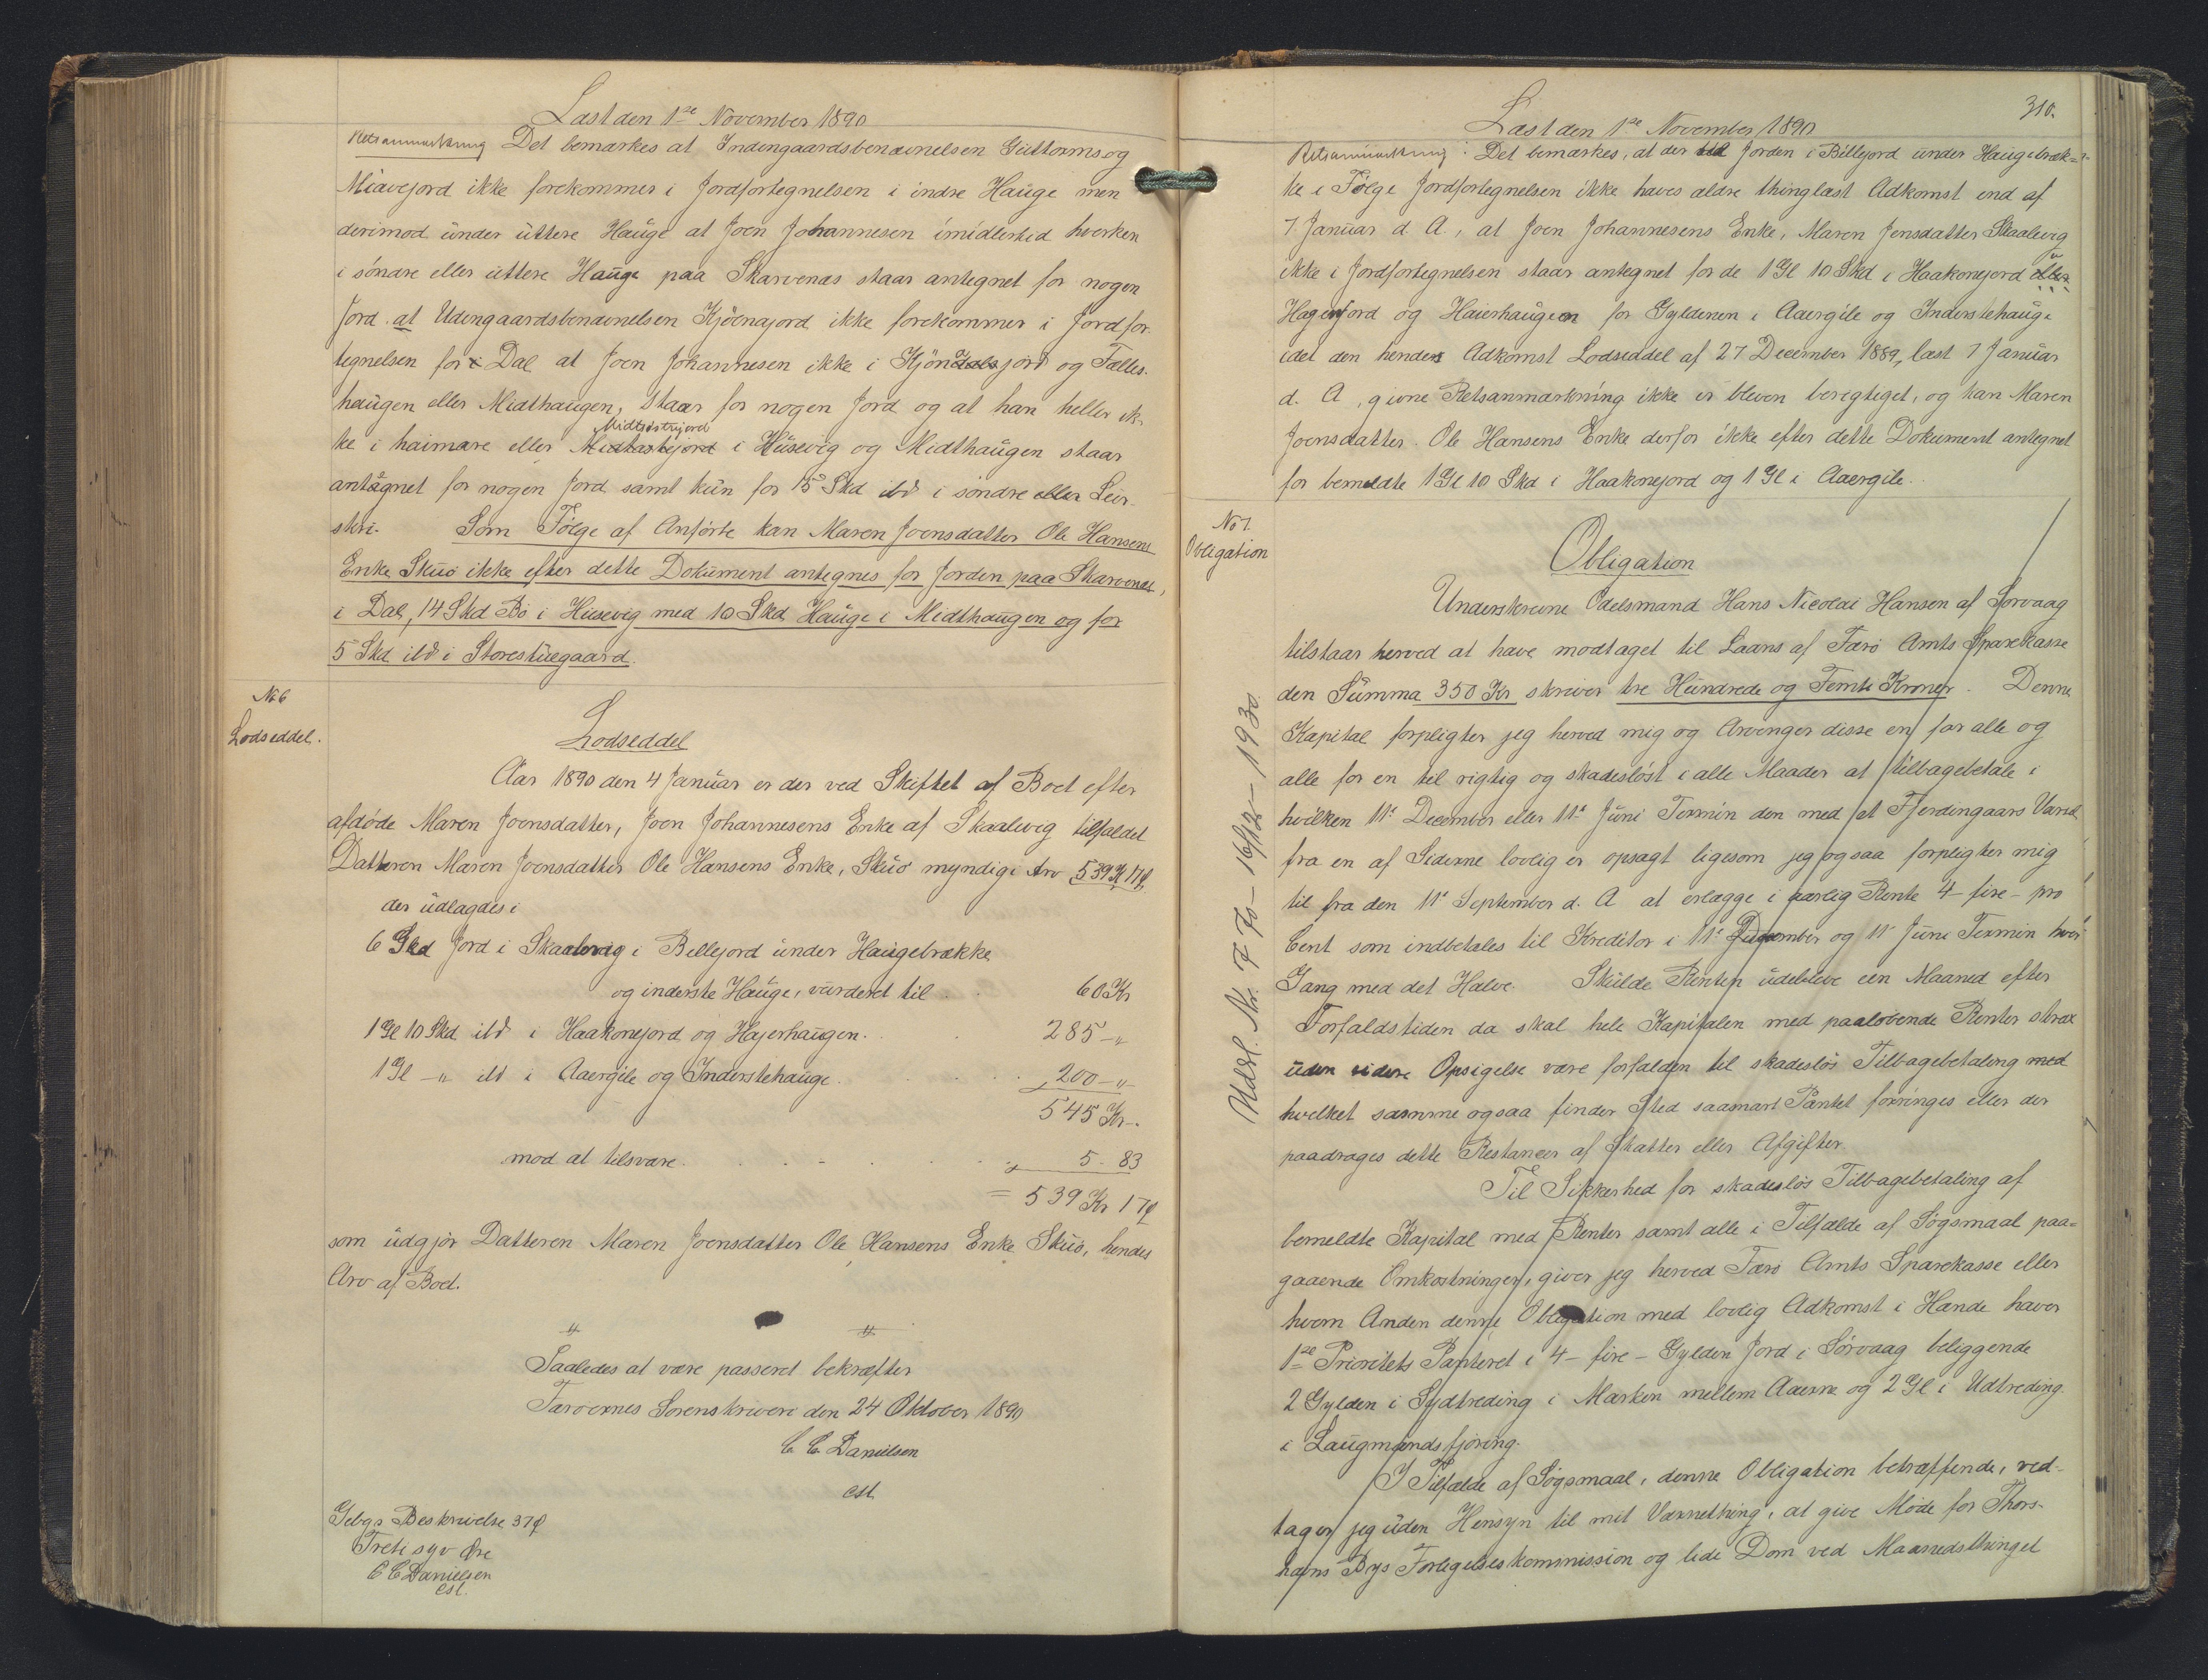 Læst den 1ste November 1890
Retsanmærkning Det bemærkes at Indengaardsbenævnelsen Guttorms og
Miavejord ikke forekommer i Jordfortegnelsen i indre Hauge men
derimod under uttere Hauge at Joen Johannesen imidlertid hverken
i söndre eller uttere Hauge paa Skarvenæs staar antegnet for nogen
Jord. at Udengaardsbenævnelsen Kjöenajord ikke forekommer i Jordfor-
tegnelsen for Dal at Joen Johannesen ikke i Kjöndalsjord og Fælles-
haugen eller Midthaugen, staar for nogen Jord og at han heller ik-
Midtöstrijord
ke i haimare eller Midtastejord i Husevig og Midthaugen staar
antægnet for nogen Jord samt kun for 15 Skd ibd i söndre eller Leir-
skri- Som Fölge af Anförte kan Maren Joensdatter Ole Hansens
Enke Skuö ikke efter dette Dokument antegnes for Jorden paa Skarvenæs,
i Dal, 14 Skd Bö i Husevig med 10 Skd Hauge i Midthaugen og for
5 Skd ibd i Storestuegaard.
No 6
Lodseddel.
Lodseddel
Aar 1890 den 4 Januar er der ved Skiftet af Boet efter
afdöde Maren Joensdatter, Joen Johannesens Enke af Skaalevig tilfaldet
Datteren Maren Joensdatter Ole Hansens Enke, Skuö myndig i Arv 539 K 17 ø
der udlagdes i
6 Skd Jord i Skaalevig i Billejord under Haugebrække
og inderste Hauge, vurderet til . . 60 Kr
1 Gl 10 Skd ibd i Haakonejord og Hajerhaugen. . . 285 - "
1 Gl - " ibd i Aaergile og Inderstehauge. . . . . 200 - "
545 Kr -.
mod at tilsvare. . . . . . . 5 - 83
= 539 Kr 17 ø
som udgjör Datteren Maren Joensdatter Ole Hansens Enke Skuö, hendes
Arv af Boet.
" "
Saaledes at være passeret bekræfter
Færöernes Sorenskriveri den 24 Oktober 1890
C. C. Danielsen
cst
Gebyr Beskrivelse 37 ø
Treti syv Öre
C C Danielsen
cst.
310.
Læst den 1ste November 1890
Retsanmærkning: Det bemærkes, at der til Jorden i Billejord under Haugebræk=
ke i Fölge Jordfortegnelsen ikke haves ældre thinglæst Adkomst end af
7. Januar d. A., at Joen Johannesens Enke, Maren Jensdatter Skaalevig
ikke i Jordfortegnelsen staar antegnet for de 1 Gl 10 Skd i Haakonejord eller
Hagenjord og Haierhaugen for Gyldenen i Aaergile og Inderstehauge
idet den hendes Adkomst Lodseddel af 27 December 1889, læst 7 Januar
d. A, givne Retsanmærkning ikke er bleven berigtiget, og kan Maren
Joensdatter. Ole Hansens Enke derfor ikke efter dette Dokument antegnet
for bemeldte 1 Gl 10 Skd i Haakonejord og 1 Gl i Aaergile.
No 7.
Obligation
Obligation
Underskrevne Odelsmand Hans Nicolai Hansen af Sörvaag
tilstaar herved at have modtaget til Laans af Færö Amts Sparekasse
den Summa 350 Kr skriver tre Hundrede og Femti Kroner. Denne
Kapital forpligter jeg herved mig og Arvinger disse en for alle og
alle for en til rigtig og skadeslöst i alle Maader at tilbagebetale i
hvilken 11te December eller 11te Juni Termin den med et Fjerdingaars Varsel
fra en af Siderne lovlig er opsagt ligesom jeg ogsaa forpligter mig
til fra den 11te September d. A at erlægge i aarlig Rente 4 - fire - pro
Cent som indbetales til Kreditor i 11te December og 11te Juni Termin hver
Gang med det Halve. Skulde Renten udebleve een Maaned efter
Forfaldstiden da skal hele Kapitalen med paalöbende Renter strax
uden videre Opsigelse være forfalden til skadeslös Tilbagebetaling med
hvilket samme ogsaa finder Sted saasnart Pantet forringes eller der
paadrages dette Restancer af Skatter eller Afgifter.
Til Sikkerhed for skadeslös Tilbagebetaling af
bemeldte Kapital med Renter samt alle i Tilfælde af Sögsmaal paa=
gaaende Omkostninger, giver jeg herved Færö Amts Sparekasse eller
hvem Anden denne Obligation med lovlig Adkomst i Hænde haver
1ste Prioritets Panteret i 4 - fire - Gylden Jord i Sörvaag beliggende
2 Gylden i Sydtreding i Marken mellem Aaerne og 2 Gl i Udtreding
i Laugmandsfjöring.
I Tilfælde af Sögsmaal, denne Obligation betræffende, ved-
tager jeg uden Hensyn til mit Værnething, at give Möde for Thors-
havns Bys Forligelseskommission og lide Dom ved Maanedsthinget
Udsl. Nr. 7 Fo - 16/12 - 1930.